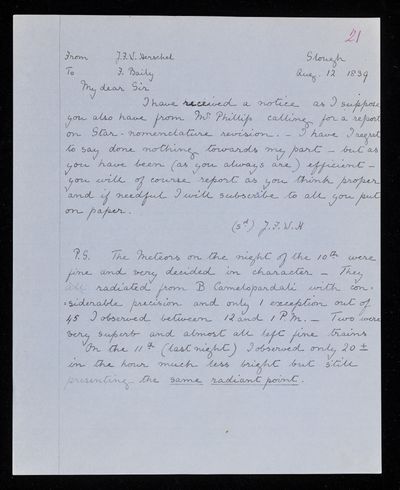 21
From J.F.W. Herschel Slough
To F. Baily Aug. 12 1839
My dear Sir
I have received a notice as I suppose
you also have from Mr Phillips calling for a report
on Star-nomenclature revision. - I have I regret
to say done nothing towards my part - but as
you have been (as you always are) efficient -
you will of course report as you think proper
and if needful I will subscribe to all you put
on paper.
(sd) J.F.W.H
P.S. The Meteors on the night of the 10th were
fine and very decided in character - They
all radiated from B Camelopardali with con-
-siderable precision and only 1 exception out of
45 I observed between 12 and 1 P.M. - Two were
very superb and almost all left fine trains
On the 11th (last night) I observed only 20 ±
in the hour much less bright but still
presenting the same radiant point.